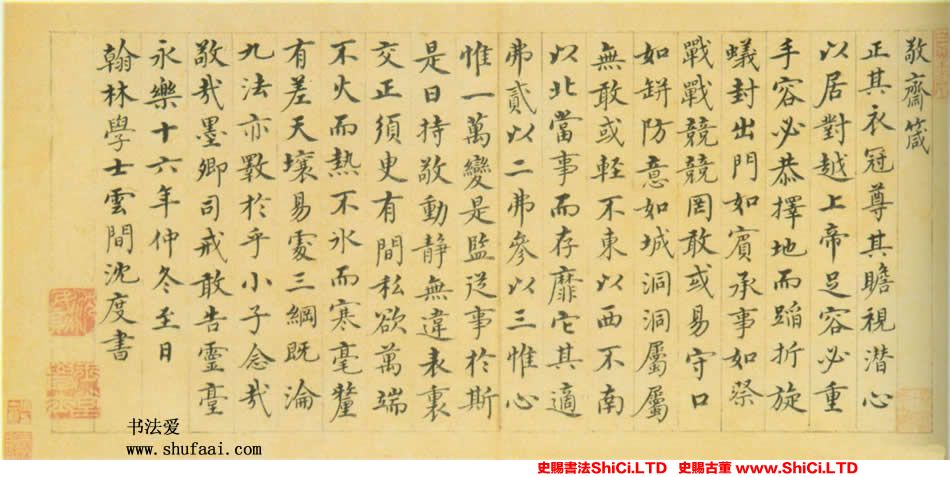 敬齋箴
正其衣冠尊其瞻視潛心
以居對越上帝足容必重
手容必恭擇地而蹈折旋
蟻封出門如賓承事如祭
戰戰兢兢罔敢或易守口
如缾防意如城洞洞屬屬
無敢或輕不東以西不南
以北當事而存靡它其適
弗貳以二弗參以三惟心
惟一萬變是監從事於斯
是曰持敬動靜無違表裏
交正須臾有間私欲萬端
不火而熱不氷而寒毫釐
有差天壤易處三綱既淪
九法亦斁於乎小子念哉
敬哉墨卿司戒敢告靈臺
永樂十六年仲冬至日
翰林學士雲間沈度書
书法爱
www.shufaai.com
史賜書法ShiCi.LTD 史賜古董 www.ShiCi.LTD